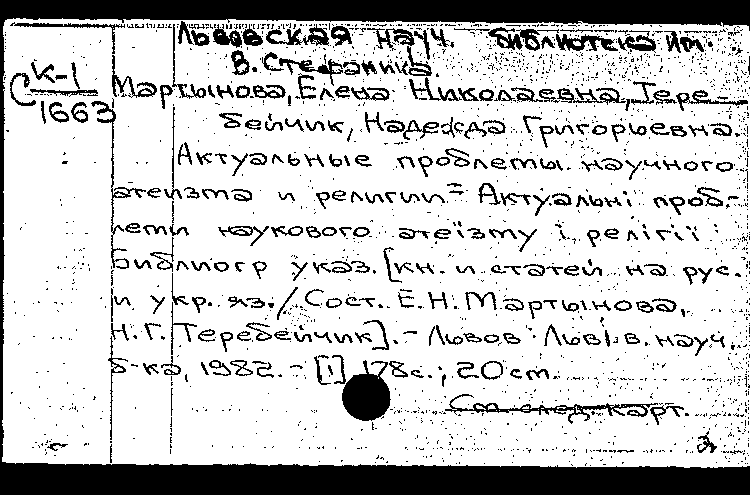 Львовская науч. библиотека им.
В. Стефаника.
С К-1
1663
Мартынова, Елена Николаевна, Тере-
бейчик, Надежда Григорьевна.
Актуальные проблемы научного
атеизма и религии = Актуальні проб-
леми наукового атеїзму і релігії :
Библиогр указ. [кн. и статей на рус.
и укр. яз. / Сост. Е.Н. Мартынова,
Н.Г. Теребейчик]. - Львов : Львів. науч.
б-ка, 1982. - [1] 178 с. ; 20 см.
См. след. карт.